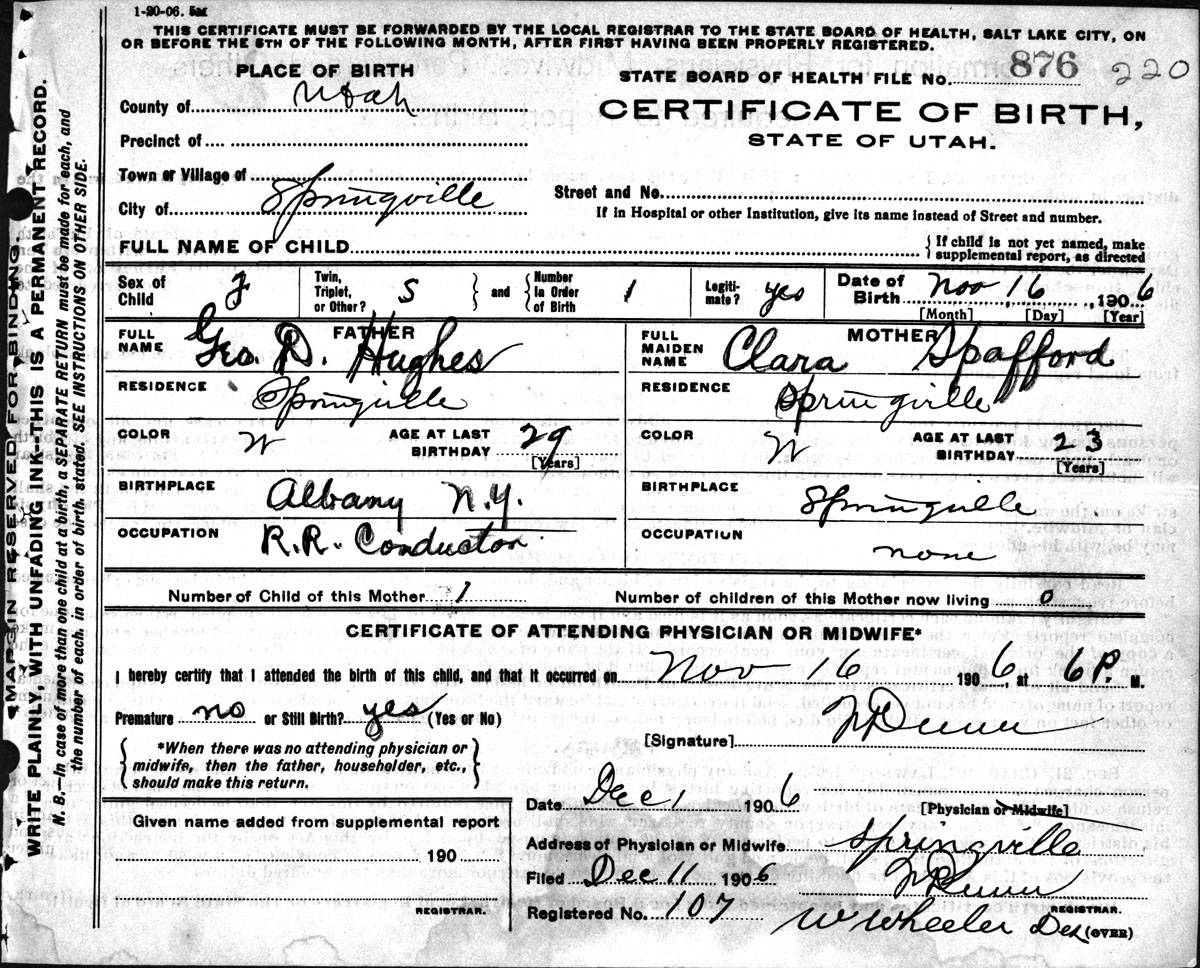 1-20-06.
THIS CERTIFICATE MUST BE FORWARDED BY THE LOCAL REGISTRAR TO THE STATE BOARD OF HEALTH, SALT LAKE CITY, ON
OR BEFORE THE 5TH OF THE FOLLOWING MONTH, AFTER FIRST HAVING BEEN PROPERLY REGISTERED.
PLACE OF BIRTH
STATE BOARD OF HEALTH FILE No. 876 220
County of Utah
CERTIFICATE OF BIRTH,
STATE OF UTAH.
Precinct of
Town or Village of
City of Springville
Street and No.
If in Hospital or other Institution, give its name instead of Street and number.
FULL NAME OF CHILD
{ If child is not yet named, make
supplemental report, as directed
Sex of Child F Twin, Triplet, or Other? S } and { Number In Order of Birth 1 Legiti-mate? yes Date of Birth Nov 16, 1906
[Month] [Day] [Year]
FATHER
FULL NAME Geo. D. Hughes
RESIDENCE Springville
COLOR W AGE AT LAST BIRTHDAY 29 [Years]
BIRTHPLACE Albany N.Y.
OCCUPATION R.R. Conductor
MOTHER
FULL MAIDEN NAME Clara Spafford
RESIDENCE Springville
COLOR W AGE AT LAST BIRTHDAY 23 [Years]
BIRTHPLACE Springville
OCCUPATION none
Number of Child of this Mother 1 Number of children of this Mother now living 0
CERTIFICATE OF ATTENDING PHYSICIAN OR MIDWIFE*
I hereby certify that I attended the birth of this child, and that it occurred on Nov 16 1906, at 6 P. M.
Premature no or Still Birth? yes (Yes or No)
[Signature] Dunn
{ *When there was no attending physician or
midwife, then the father, householder, etc.,
should make this return. }
Given name added from supplemental report
190
REGISTRAR.
Date Dec 1 1906 [Physician or Midwife]
Address of Physician or Midwife Springville
Filed Dec 11 1906 Dunn
REGISTRAR.
Registered No. 107 W Wheeler Dep (OVER)
MARGIN RESERVED FOR BINDING.
WRITE PLAINLY, WITH UNFADING INK--THIS IS A PERMANENT RECORD.
N. B.--In case of more than one child at a birth, a SEPARATE RETURN must be made for each, and
the number of each, in order of birth, stated. SEE INSTRUCTIONS ON OTHER SIDE.